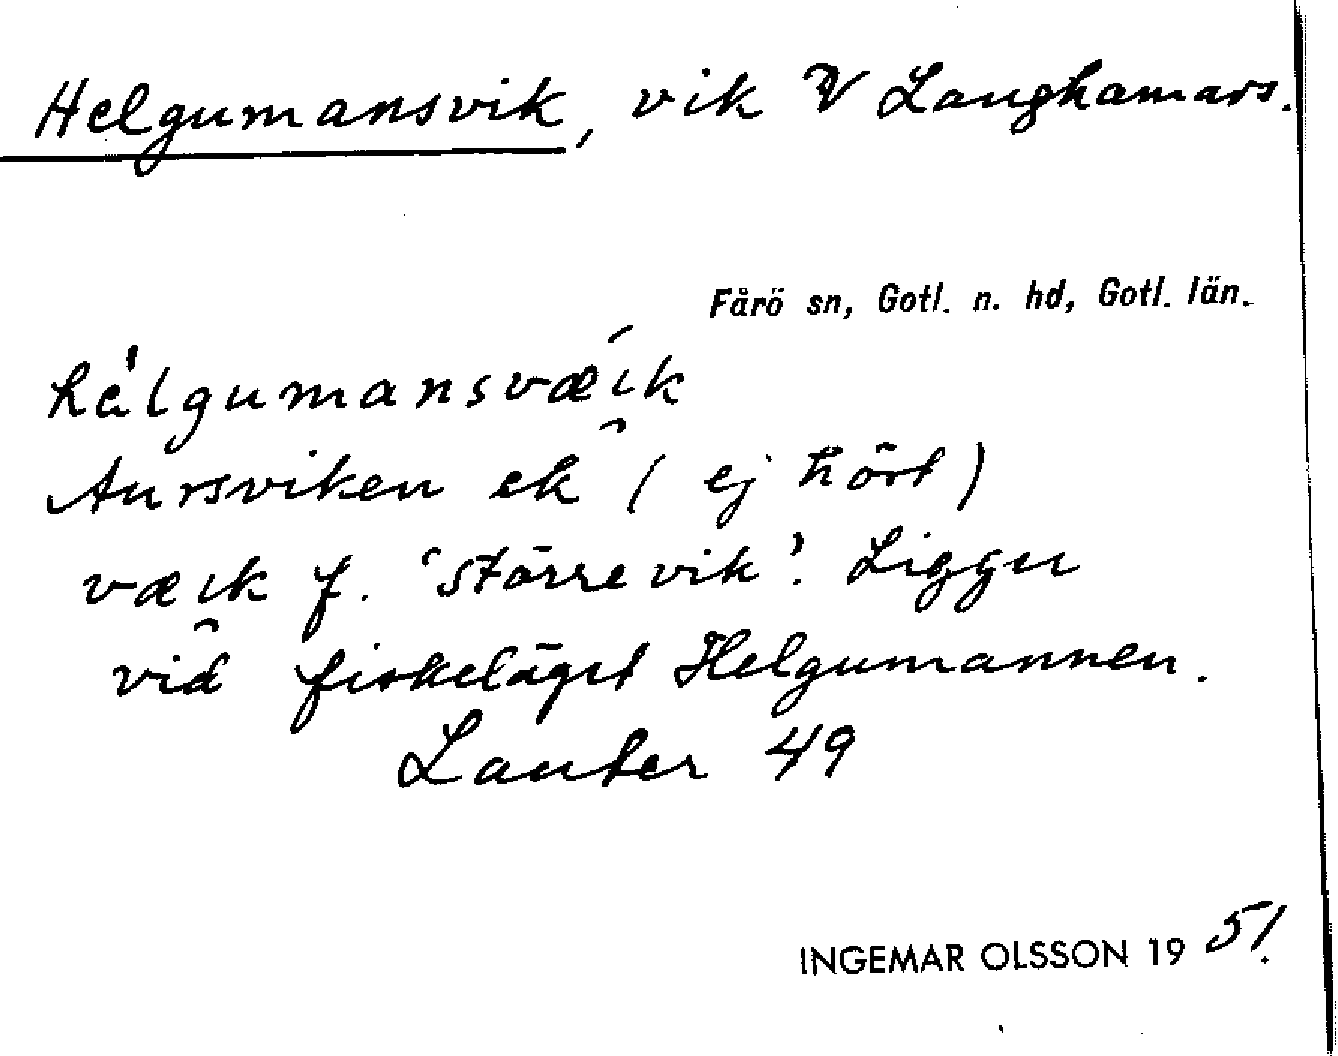 Helgumansvik, vik V Langhamars.
Fårö sn, Gotl. n. hd, Gotl. län.
hèlgumansvæi̯k
Aursviken ek (ej hört)
væi̯k f. 'större vik'. Ligger
vid fiskeläget Helgumannen.
Lauter 49
INGEMAR OLSSON 1951.